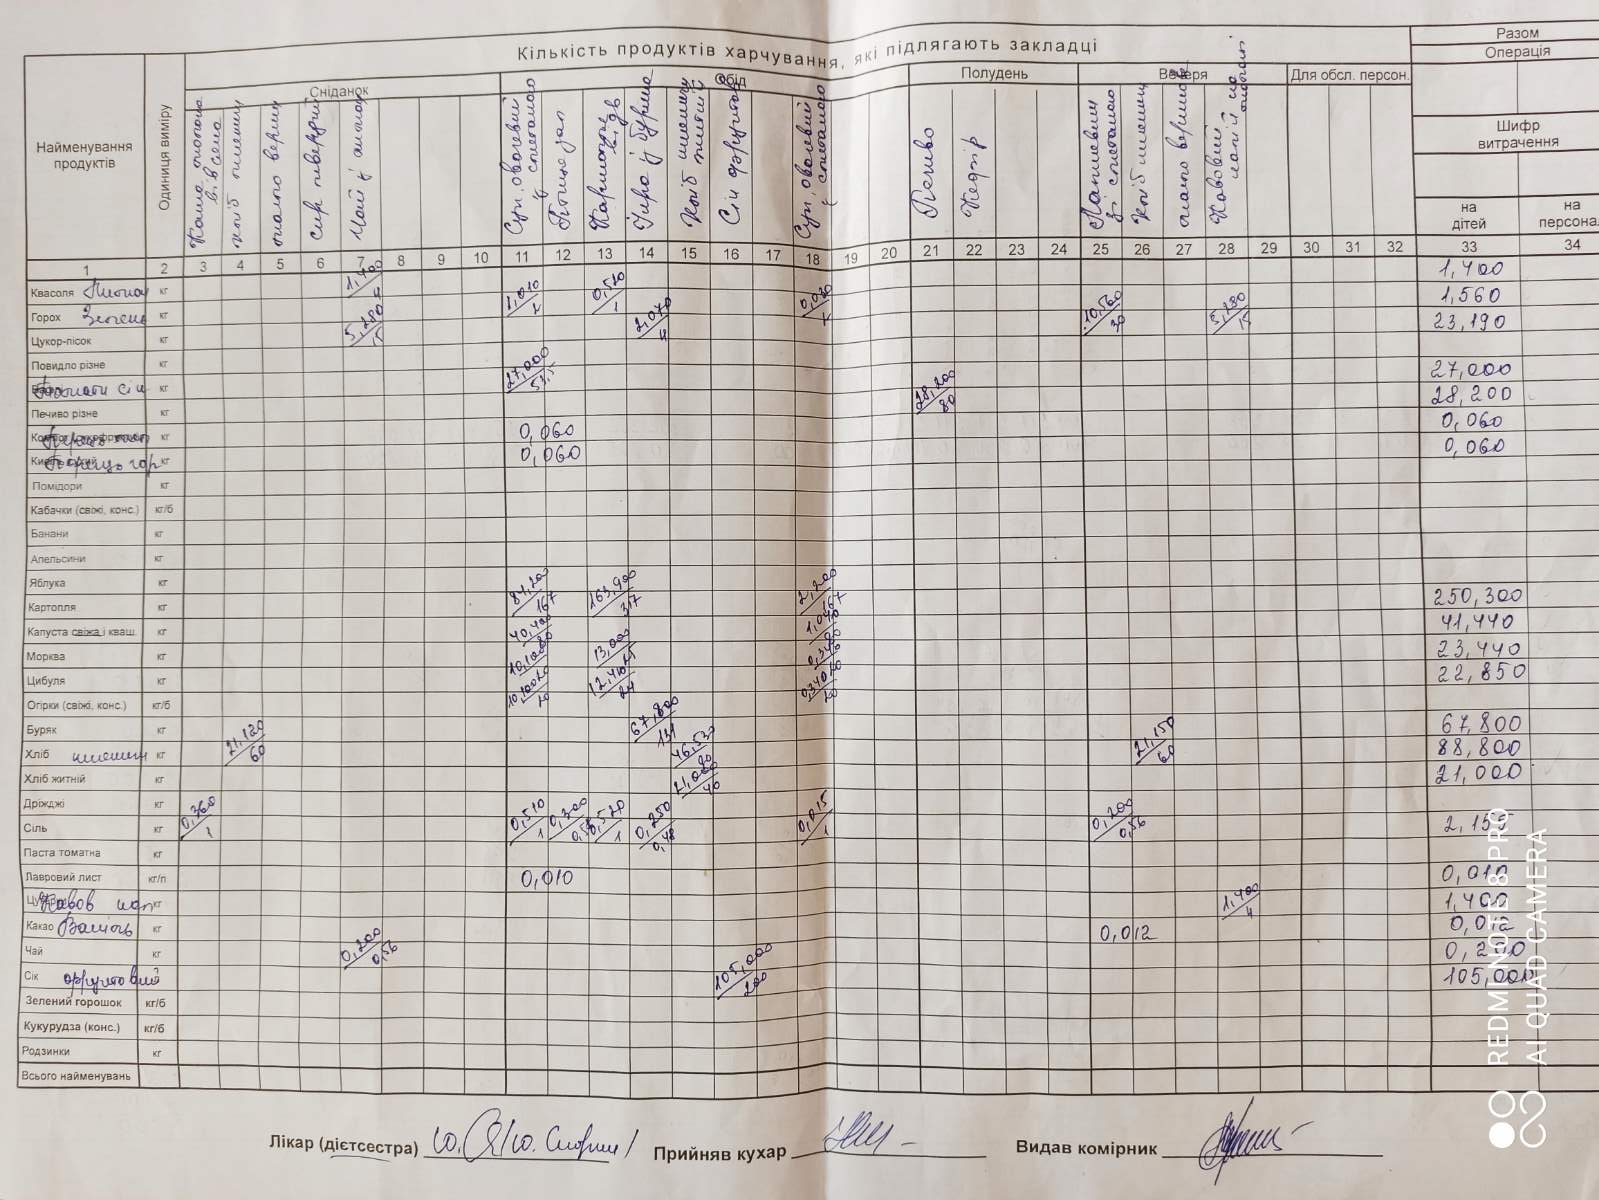 Кількість продуктів харчування, які підлягають закладці
Разом
Операція
Найменування продуктів
Одиниця виміру
Сніданок
Обід
Полудень
Вечеря
Для обсл. персон.
Шифр витрачення
на дітей
на персонал
сир твердий
Чай з
Суп. овочевий зі сметаною
Ікра з буряка
Сік фруктовий
Суп. овочевий зі сметаною
Печиво
Кефір
зі сметаною
1 2 3 4 5 6 7 8 9 10 11 12 13 14 15 16 17 18 19 20 21 22 23 24 25 26 27 28 29 30 31 32 33 34
Квасоля кг 1,400 4 1,400
Горох кг 1,010 2 0,510 1 0,030 1 1,560
Цукор-пісок кг 5,280 15 2,070 4 10,560 30 5,280 15 23,190
Повидло різне кг
Томати сік кг 27,000 53,5 27,000
Печиво різне кг 28,200 80 28,200
кг 0,060 0,060
кг 0,060 0,060
Помідори кг
Кабачки (свіжі, конс.) кг/б
Банани кг
Апельсини кг
Яблука кг
Картопля кг 84,200 167 163,900 317 2,200 250,300
Капуста свіжа і кваш. кг 40,400 80 1,040 41,440
Морква кг 10,100 20 13,000 25 0,340 23,440
Цибуля кг 10,100 20 12,410 24 0,340 20 22,850
Огірки (свіжі, конс.) кг/б
Буряк кг 67,800 131 67,800
Хліб кг 21,120 60 46,530 90 21,150 60 88,800
Хліб житній кг 21,000 40 21,000
Дріжджі кг
Сіль кг 0,360 1 0,510 1 0,300 0,520 1 0,250 0,48 0,015 1 0,200 0,56 2,155
Паста томатна кг
Лавровий лист кг/п 0,010 0,010
Кавов нап кг 1,400 4 1,400
Какао Ваніль кг 0,012 0,012
Чай кг 0,200 0,56 0,200
Сік фруктовий кг 105,000 200 105,000
Зелений горошок кг/б
Кукурудза (конс.) кг/б
Родзинки кг
Всього найменувань
Лікар (дієтсестра)
Прийняв кухар
Видав комірник
REDMI NOTE 8 PRO
AI QUAD CAMERA